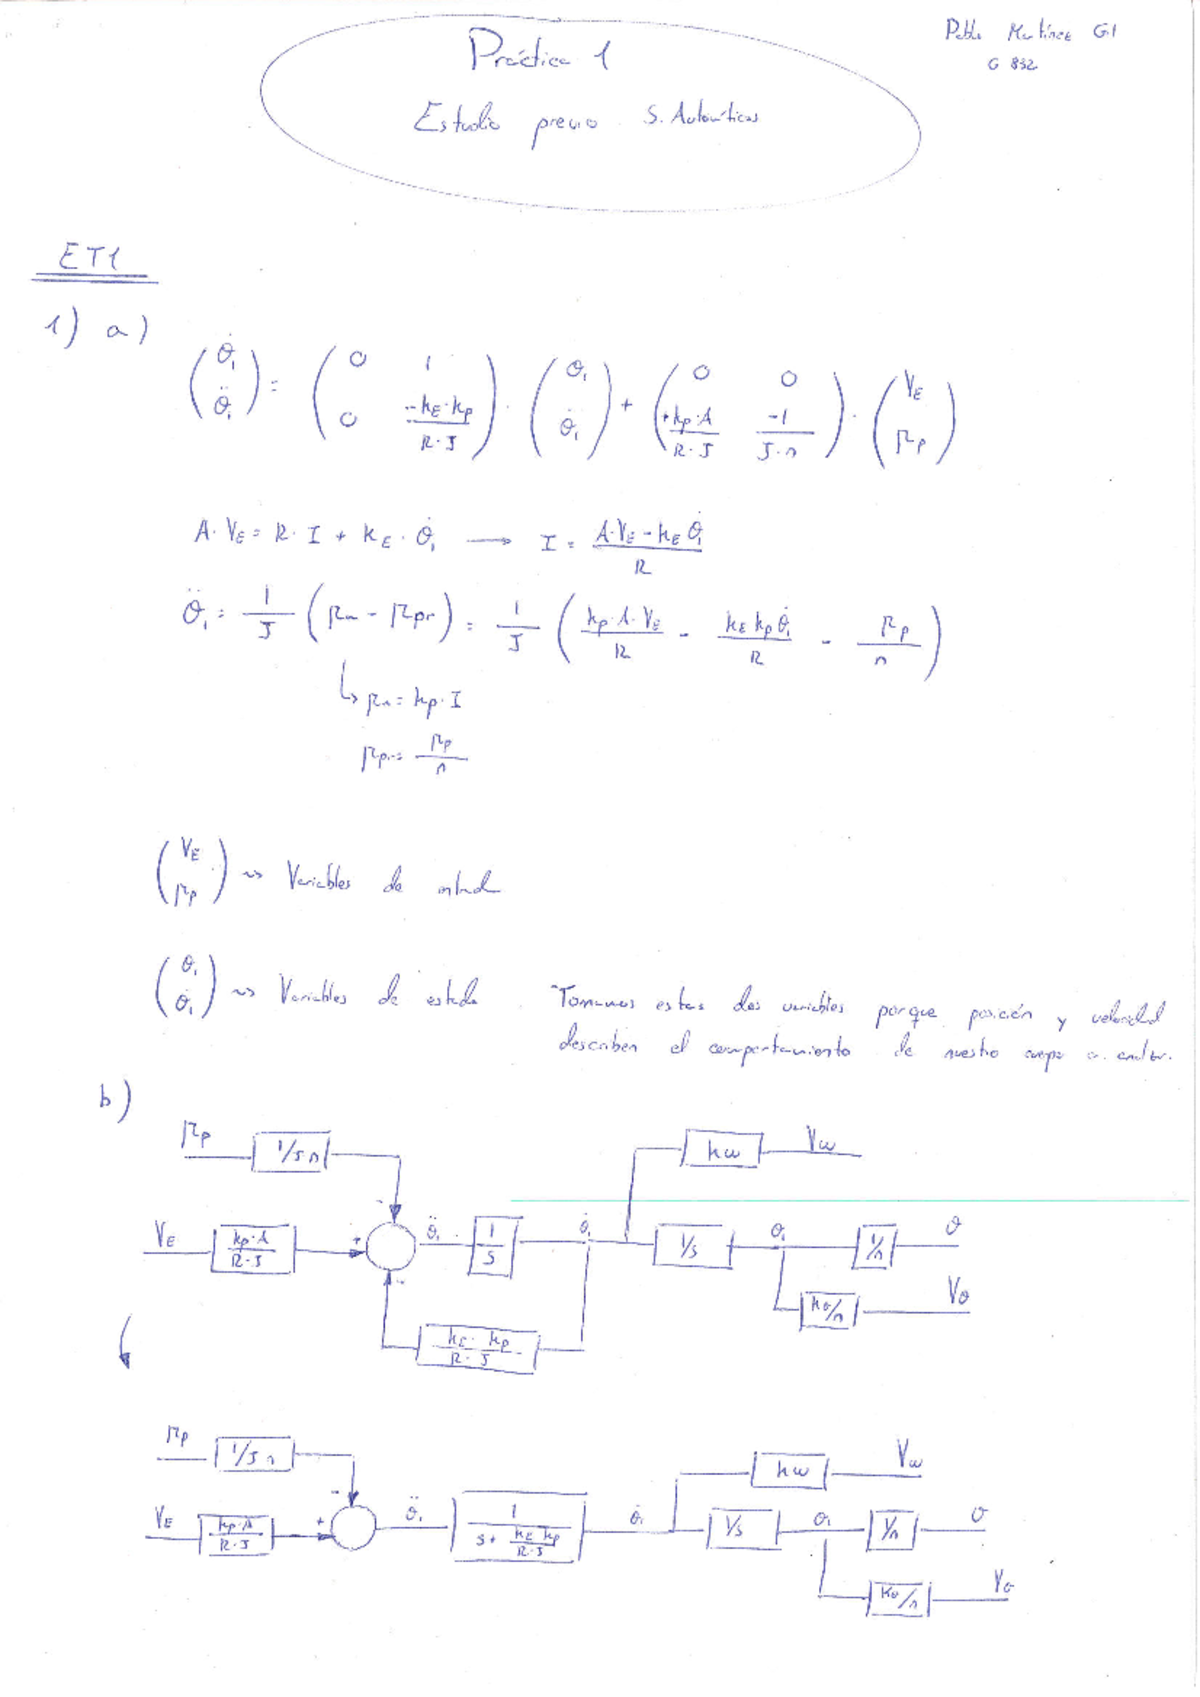 Pablo Martínez G1
G 832
Práctica 1
Estudio previo S. Automáticos
ET1
1) a)
(θ̇₁ ; θ̈₁) = (0 1 ; 0 -kE·kp/R·J) · (θ₁ ; θ̇₁) + (0 0 ; +kp·A/R·J -1/J·n) · (VE ; Γp)
A·VE = R·I + kE·θ̇₁ → I = A·VE - kE θ̇₁ / R
θ̈₁ = 1/J (Γm - Γpr) = 1/J (kp·A·VE/R - kE kp θ̇₁/R - Γp/n)
↳ Γm = kp·I
Γpr = Γp/n
(VE ; Γp) ~> Variables de entrada
(θ₁ ; θ̇₁) ~> Variables de estado. Tomamos estas dos variables porque posición y velocidad
describen el comportamiento de nuestro cuerpo
b)
Γp 1/J n kω Vω
VE kp·A/R·J + - - θ̈₁ 1/S θ̇₁ 1/s θ₁ 1/n θ
kθ/n Vθ
kE·kp/R·J
Γp 1/J n kω Vω
VE kp·A/R·J + - θ̈₁ 1/(s+ kE kp/R·J) θ̇₁ 1/s θ₁ 1/n θ
kθ/n Vθ